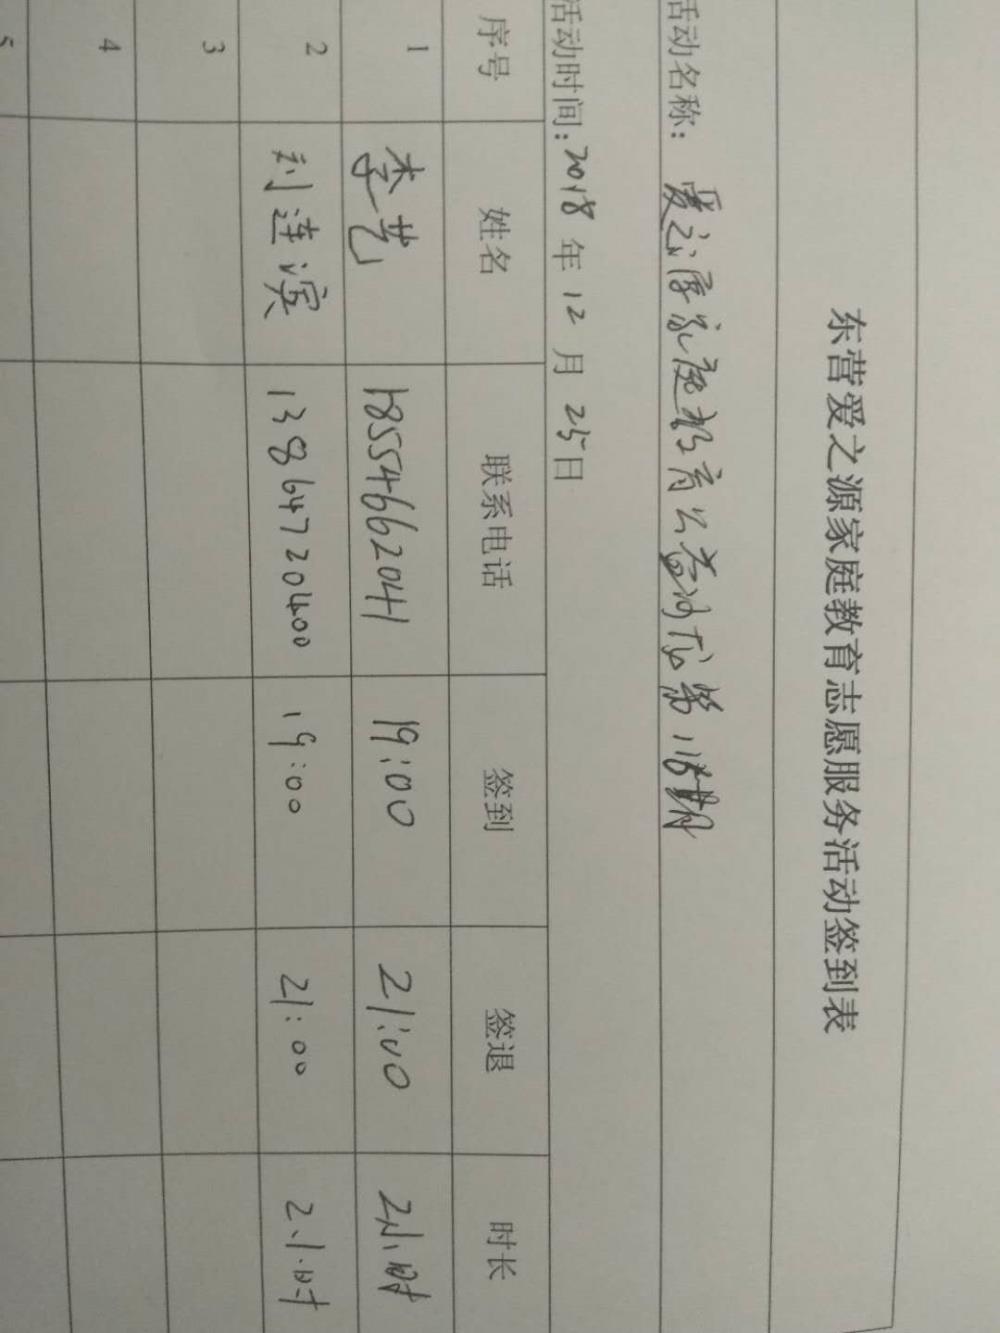 东营爱之源家庭教育志愿服务活动签到表
活动名称：爱之源家庭教育公益沙龙第118期
活动时间：2018年12月25日
序号 姓名 联系电话 签到 签退 时长
1 李艺 18554662041 19:00 21:00 2小时
2 刘连滨 13864720400 19:00 21:00 2小时
3
4
5